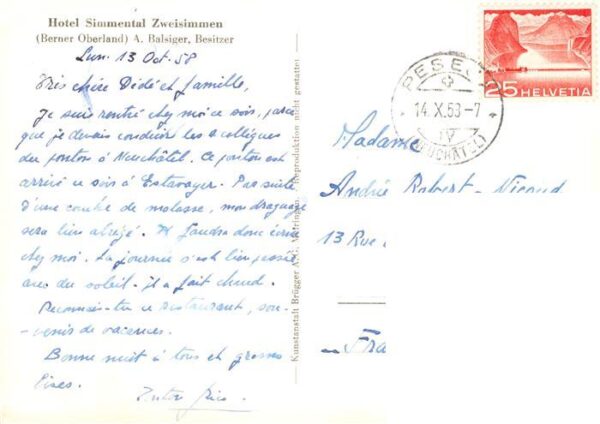 Hotel Simmental Zweisimmen
(Berner Oberland) A. Balsiger, Besitzer
Lun. 13 Oct. 58
Très chère Dédé et famille,
Je suis rentré chez moi ce soir, parce
que je devais conduire les 4 collègues
du ponton à Neuchâtel. Ce ponton est
arrivé ce soir à Estavayer. Par suite
d'une couche de molasse, mon draguage
sera bien abrégé. Il faudra donc écrire
chez moi. La journée s'est bien passée
avec du soleil - il a fait chaud.
Reconnais-tu ce restaurant, sou-
-venir de vacances.
Bonne nuit à tous et grosses
bises.
Kunstanstalt Brügger A.G. Meiringen. Reproduktion nicht gestattet
PESEUX
14.X.58-7
(NEUCHÂTEL)
25 HELVETIA
Madame
André Robert-Nicoud
13 Rue
Fra